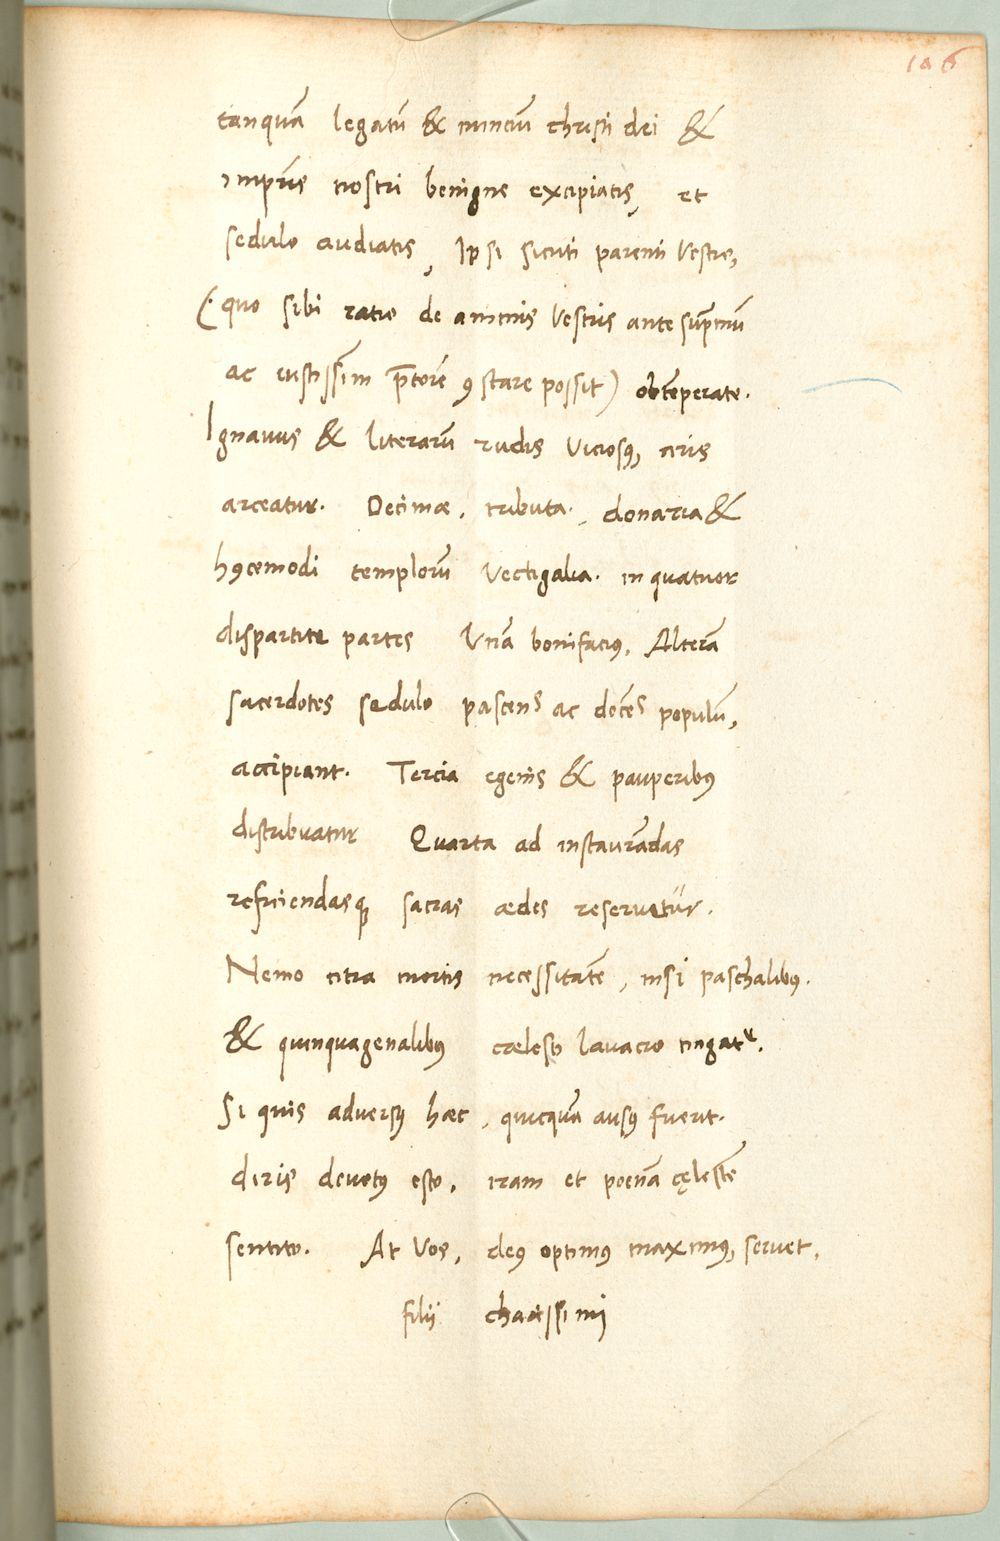 106
tanquā legatū & nunciū christi dei &
imp̄ris nostri benigne excipiatis, et
sedulo audiatis, Ipsi sicuti parenti vestre,
(quo sibi ratio de animis vestris ante sup̄mū
ac iustissim p̄torē ꝯstare possit) obtēperate.
Ignavus & literarū rudis viciosꝰ, aris
arceatur. Decimæ, tributa, donaria &
hꝰcemodi templorū vectigalia. in quatuor
dispartite partes Unā bonifaciꝰ, Alterā
sacerdotes sedulo pascens ac docēs populū,
accipiant. Tercia egenis & pauperibꝰ
distribuatur Quarta ad instaurādas
reficiendasqꝫ sacras ædes reservetur.
Nemo citra mortis necessitatē, nisi paschalibꝰ.
& quinquagenalibꝰ cælesti lavacro tingatᵘʳ.
Si quis adversꝰ hæc, quicquā ausꝰ fuerit.
diris devotꝰ esto, iram et poenā cęlestē
sentito. At vos, deꝰ optimꝰ maximꝰ, servet,
filii charissimi